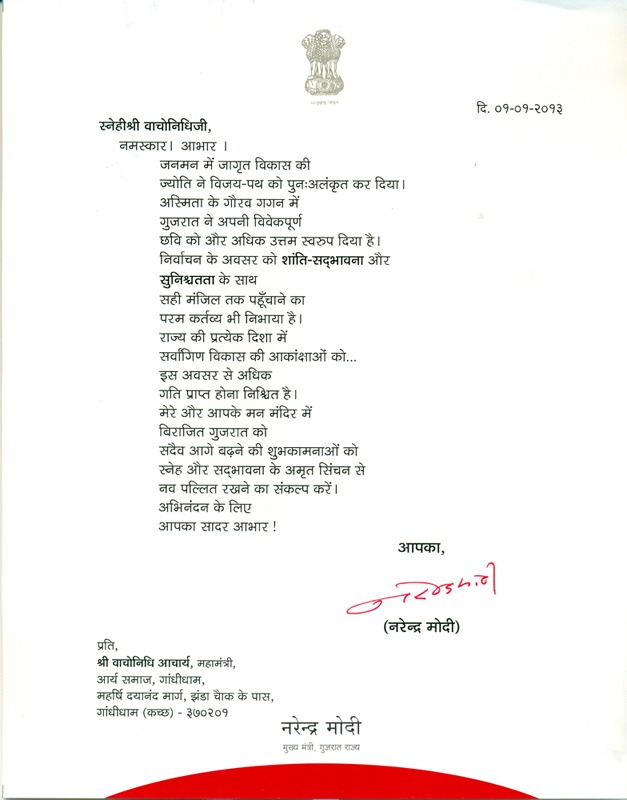 दि. ०१-०१-२०१३
स्नेहीश्री वाचोनिधिजी,
नमस्कार। आभार ।
जनमन में जागृत विकास की
ज्योति ने विजय-पथ को पुनःअलंकृत कर दिया।
अस्मिता के गौरव गगन में
गुजरात ने अपनी विवेकपूर्ण
छवि को और अधिक उत्तम स्वरुप दिया है।
निर्वाचन के अवसर को शांति-सद्‌भावना और
सुनिश्चतता के साथ
सही मंजिल तक पहूँचाने का
परम कर्तव्य भी निभाया है।
राज्य की प्रत्येक दिशा में
सर्वांगिण विकास की आकांक्षाओं को...
इस अवसर से अधिक
गति प्राप्त होना निश्चित है।
मेरे और आपके मन मंदिर में
बिराजित गुजरात को
सदैव आगे बढ़ने की शुभकामनाओं को
स्नेह और सद्‌भावना के अमृत सिंचन से
नव पल्लित रखने का संकल्प करें।
अभिनंदन के लिए
आपका सादर आभार !
आपका,
(नरेन्द्र मोदी)
प्रति,
श्री वाचोनिधि आचार्य, महामंत्री,
आर्य समाज, गांधीधाम,
महर्षि दयानंद मार्ग, झंडा चौक के पास,
गांधीधाम (कच्छ) - ३७०२०१
नरेन्द्र मोदी
मुख्य मंत्री, गुजरात राज्य